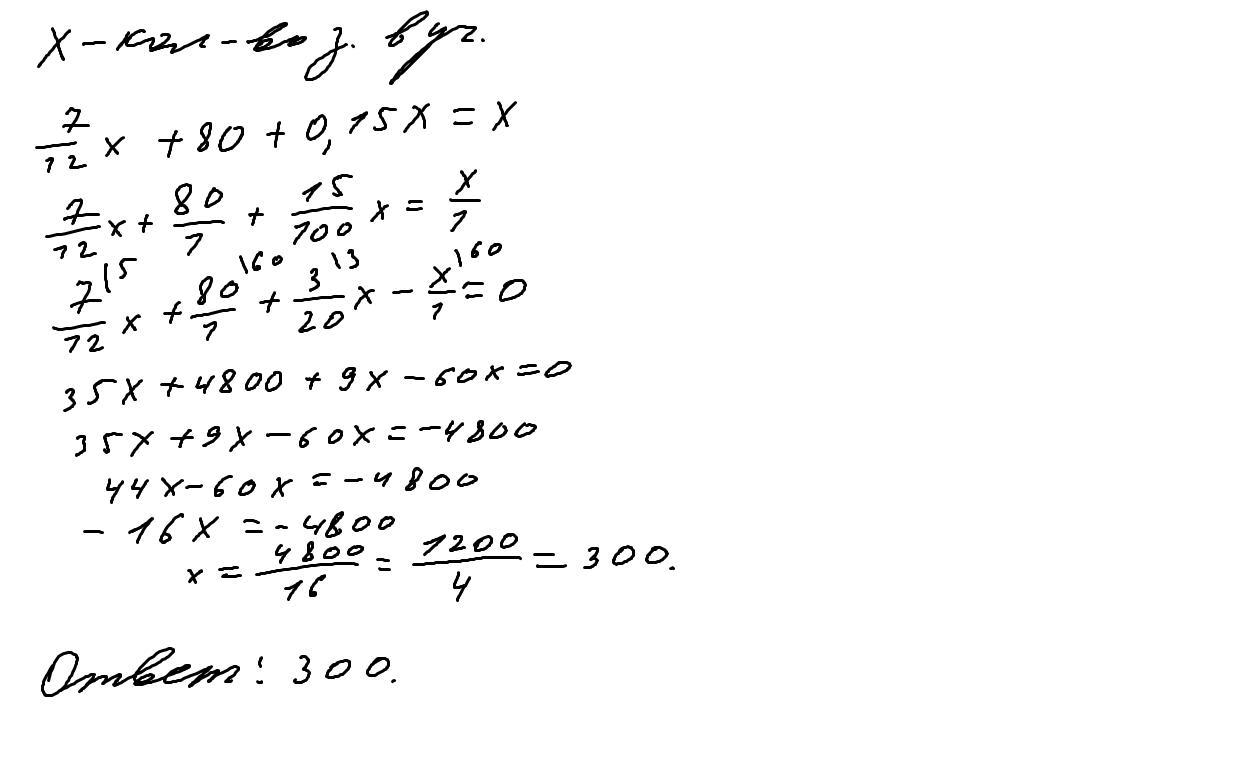 X - кол-во з. в уч.
7/12 x + 80 + 0,15X = X
7/12 x + 80/1 + 15/100 x = X/1
7/12 \5 x + 80/1 \60 + 3/20 \3 x - X/1 \60 = 0
35X + 4800 + 9X - 60X = 0
35X + 9X - 60X = -4800
44X - 60X = -4800
- 16X = -4800
x = 4800/16 = 1200/4 = 300.
Ответ: 300.